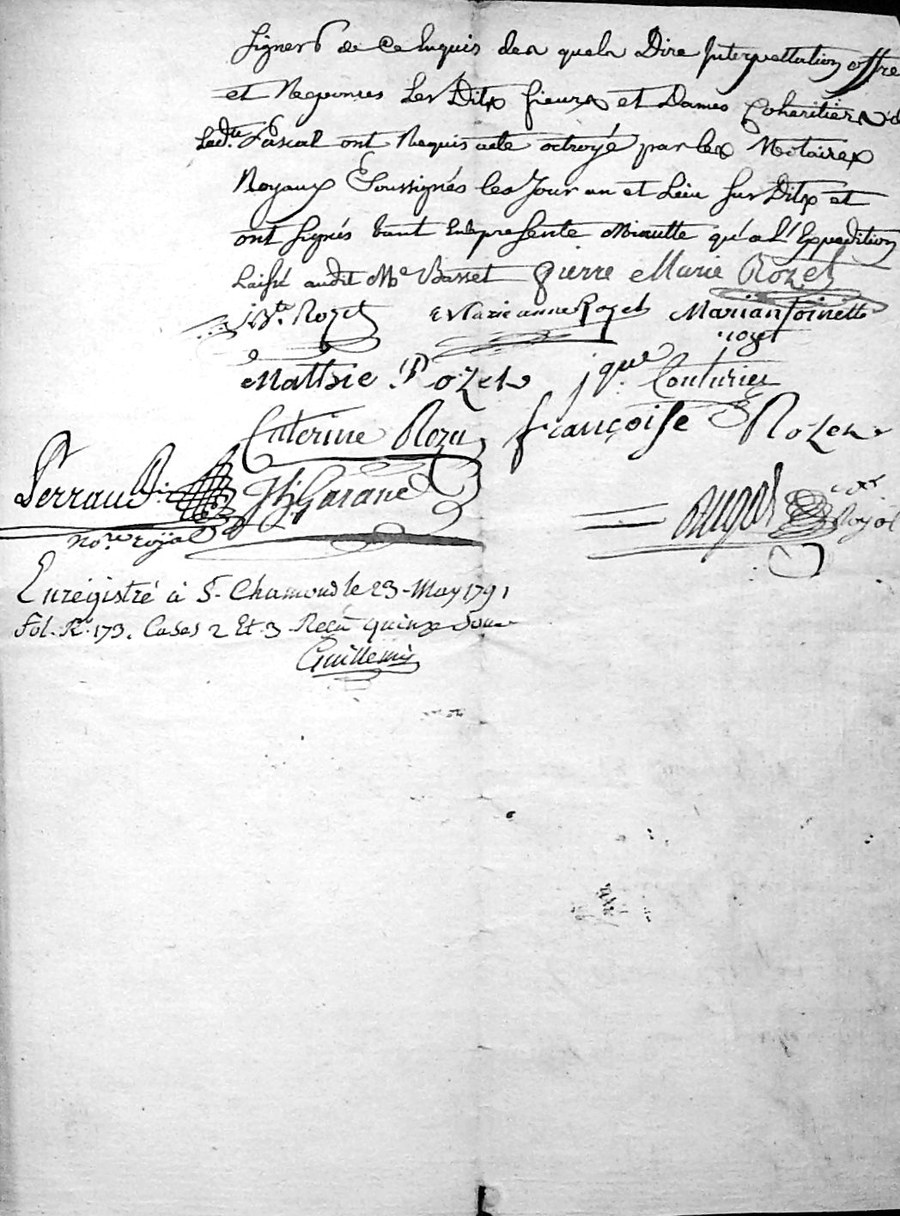 Signer de ce Enquis des quels Dire Interpellation offre
et Reponses Les Dits sieurs et Dames Coheritiers d
Lad.te Pascal ont Requis acte octroyé par les Notaires
Royaux Soussignés les Jour an et Lieu Sus Dits et
ont Signés tant Lapresente Minutte qu'a L'Expedition
Laissé audit Me Basset Pierre Marie Rozet
J.Bte. Rozet Marie anne Rozet Mariantoinette
rozet
Matthie Rozet jque. Couturier
Caterine Roze françoise Rozet
Perraud Garand
No.re royal Royal
Enrégistré à St. Chamond le 23 May 1791
Fol. Ro. 173. Cases 2 Et 3 Reçu quinze Sous
Guillemin